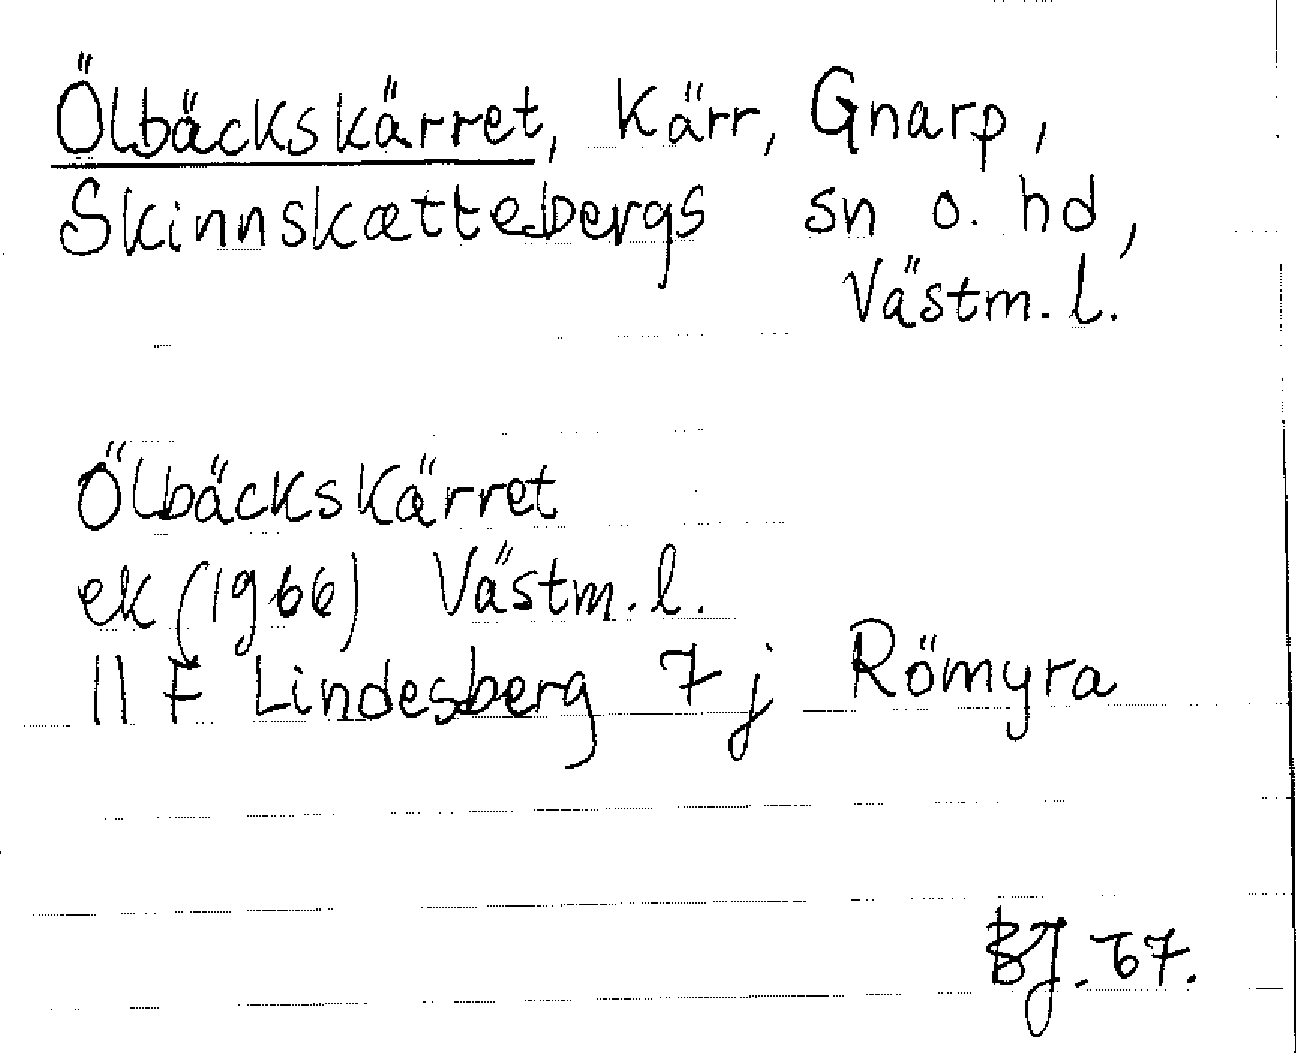 Ölbäckskärret, Kärr, Gnarp,
Skinnskattebergs sn o. hd,
Västm. l.
Ölbäckskärret
ek (1966) Västm. l.
11 F Lindesberg 7 j Römyra
BJ. 67.